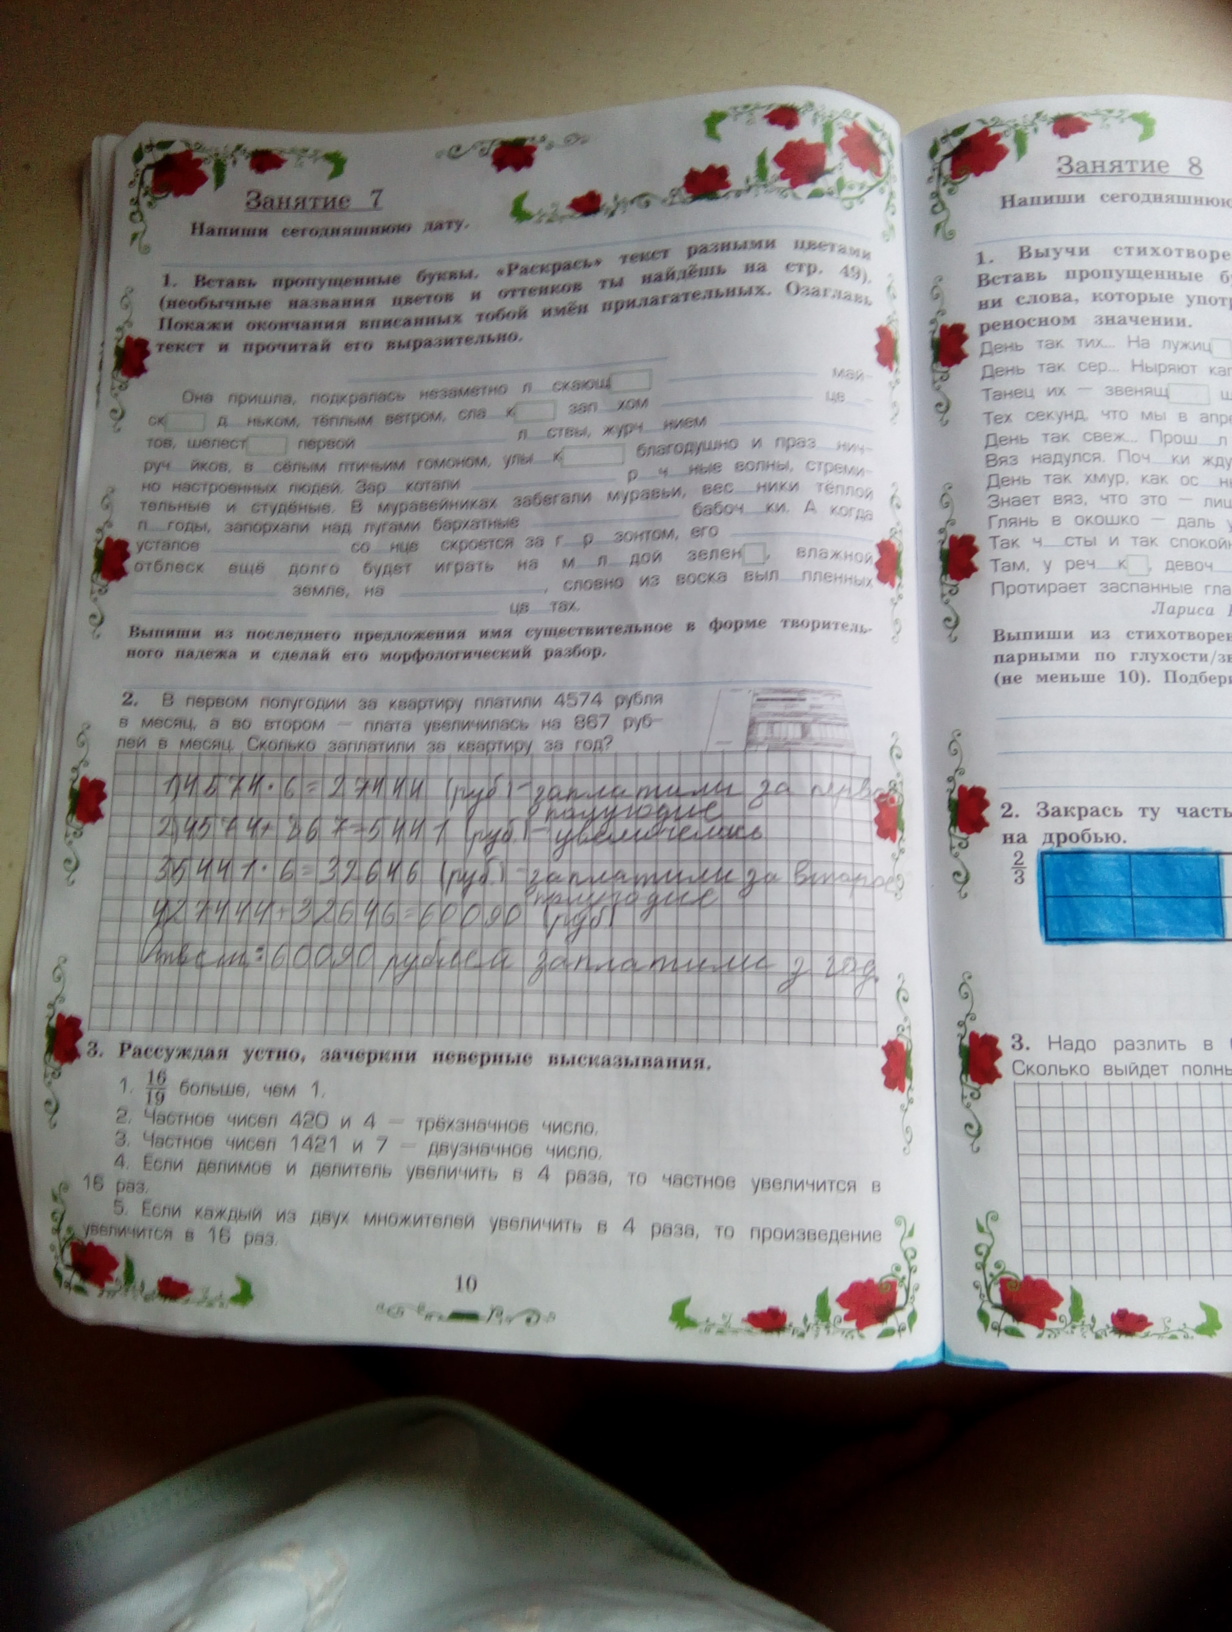 Занятие 7
Напиши сегодняшнюю дату.
1. Вставь пропущенные буквы. «Раскрась» текст разными цветами
(необычные названия цветов и оттенков ты найдёшь на стр. 49).
Покажи окончания вписанных тобой имён прилагательных. Озаглавь
текст и прочитай его выразительно.
Она пришла, подкралась незаметно л__скающ □ ____ май-
ск □ д__ньком, тёплым ветром, сла__к □ зап__хом ____ цв__-
тов, шелест □ первой ____ л__ствы, журч__нием ____
руч__йков, в__сёлым птичьим гомоном, улы__к □ благодушно и праз__нич-
но настроенных людей. Зар__котали ____ р__ч__ные волны, стреми-
тельные и студёные. В муравейниках забегали муравьи, вес__ники тёплой
п__годы, запорхали над лугами бархатные ____ бабоч__ки. А когда
усталое ____ со__нце скроется за г__р__зонтом, его ____
отблеск ещё долго будет играть на м__л__дой зелен □, влажной
____ земле, на ____, словно из воска выл__пленных
____ цв__тах.
Выпиши из последнего предложения имя существительное в форме творитель-
ного падежа и сделай его морфологический разбор.
2. В первом полугодии за квартиру платили 4574 рубля
в месяц, а во втором — плата увеличилась на 867 руб-
лей в месяц. Сколько заплатили за квартиру за год?
1) 4574 · 6 = 27444 (руб.) - заплатили за перво
полугодие
2) 4574 + 867 = 5441 (руб.) - увеличелась
3) 5441 · 6 = 32646 (руб.) - заплатили за второе
полугодие
4) 27444 + 32646 = 60090 (руб)
Ответ: 60090 рублей заплатили з год.
3. Рассуждая устно, зачеркни неверные высказывания.
1. 16/19 больше, чем 1.
2. Частное чисел 420 и 4 — трёхзначное число.
3. Частное чисел 1421 и 7 — двузначное число.
4. Если делимое и делитель увеличить в 4 раза, то частное увеличится в
16 раз.
5. Если каждый из двух множителей увеличить в 4 раза, то произведение
увеличится в 16 раз.
10
Занятие 8
Напиши сегодняшнюю
1. Выучи стихотворе
Вставь пропущенные б
ни слова, которые упот
реносном значении.
День так тих... На лужиц □
День так сер... Ныряют кап
Танец их — звенящ □ ш
Тех секунд, что мы в апре
День так свеж... Прош__л
Вяз надулся. Поч__ки жду
День так хмур, как ос__н
Знает вяз, что это — лиш
Глянь в окошко — даль у
Так ч__сты и так спокойн
Там, у реч__к □, девоч
Протирает заспанные гла
Лариса
Выпиши из стихотворен
парными по глухости/зв
(не меньше 10). Подбери
2. Закрась ту часть
на дробью.
2/3
3. Надо разлить в
Сколько выйдет полны